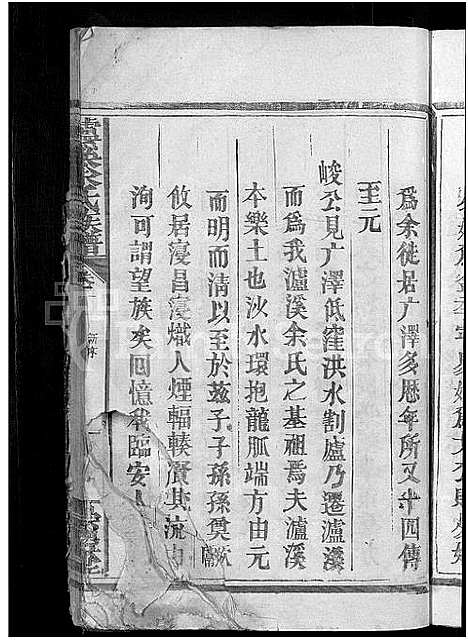 爲余徙居广澤多歷年所又十四傳
至元
峻公見广澤低窪洪水割廬乃遷瀘溪
而爲我瀘溪余氏之基祖焉夫瀘溪
本樂土也汝水環抱龍脈端方由元
而明而清以至於茲子子孫孫奠厥
攸居寖昌寖熾人煙輻輳資其流
洵可謂望族矣囘憶我臨安
瀘溪余氏族譜
卷